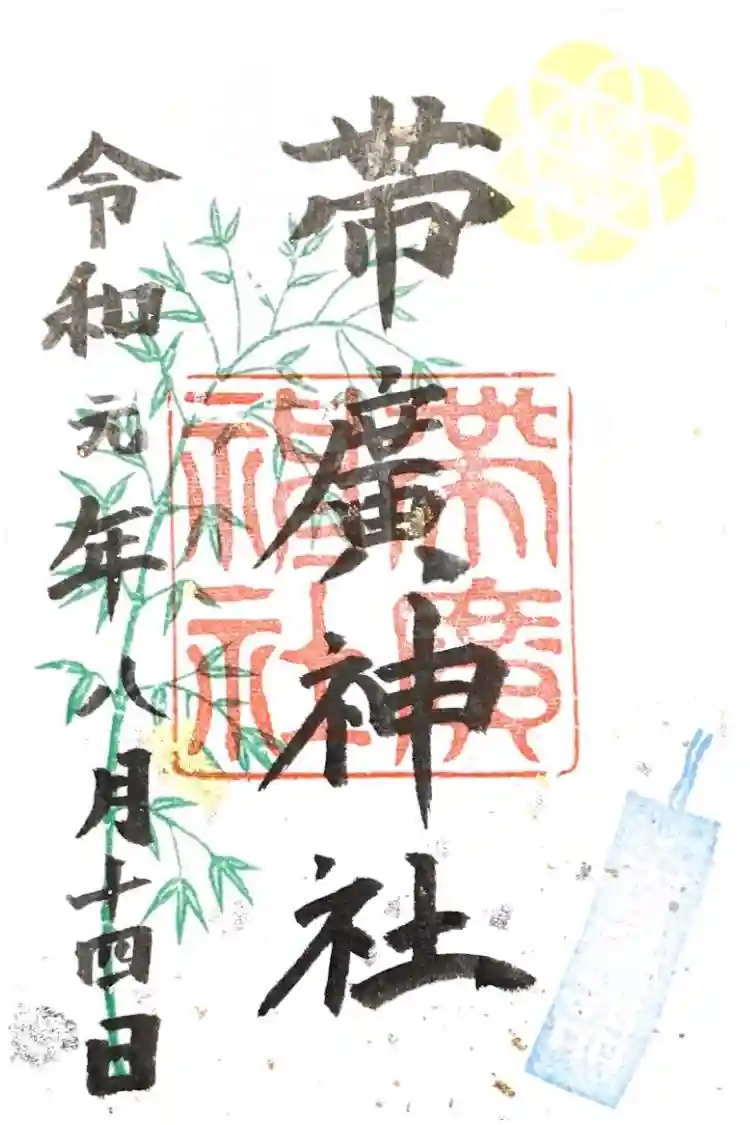 帯廣神社
帯廣
神社
令和元年八月十四日